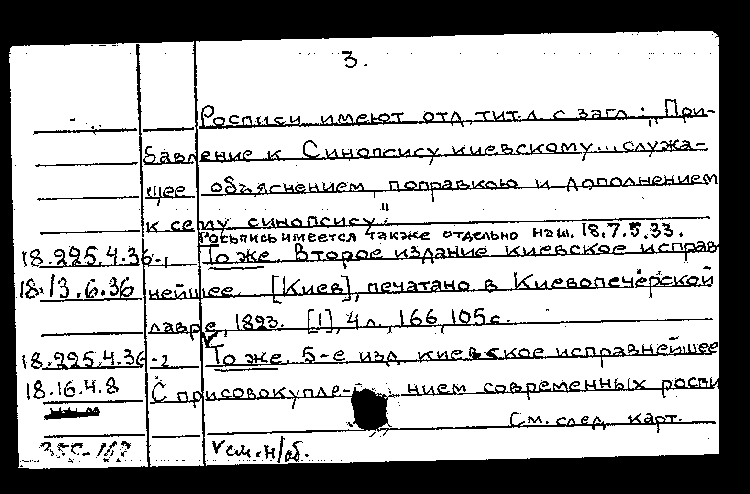 3.
Росписи имеют отд. тит. л. с загл.: „При-
бавление к Синопсису киевскому... служа-
щее объяснением, поправкою и дополнением
к сему синопсису."
Роспись имеется также отдельно наш. 18.7.5.33.
18.225.4.36-1 То же. Второе издание киевское исправ
18.13.6.36 нейшее. [Киев], печатано в Киевопечерской
лавре, 1823. [1], 4 л., 166, 105 с.
18.225.4.36-2 То же. 5-е изд. киевское исправнейшее
18.16.4.8 С присовокупле- нием современных роспи
См. след. карт.
V см. н/об.